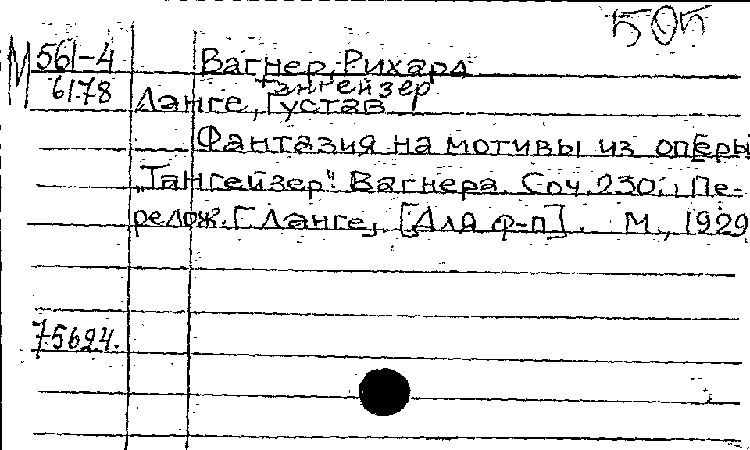 505
М 561-4 Вагнер, Рихард
Тангейзер
6178 Ланге, Густав
Фантазия на мотивы из оперы
„Тангейзер". Вагнера. Соч. 230. Пе-
релож. Г. Ланге, [Для ф-п]. М., 1929
75624.